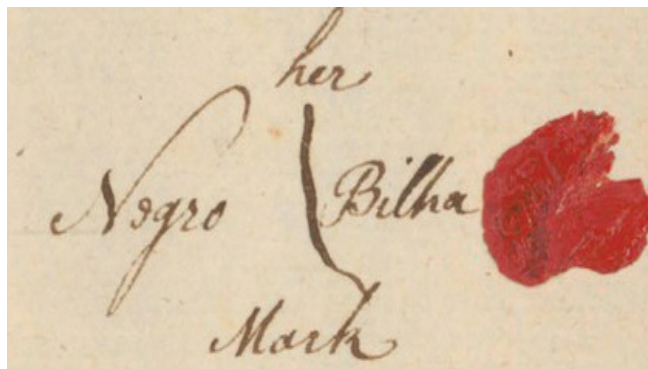 her
Negro Bilha
Mark